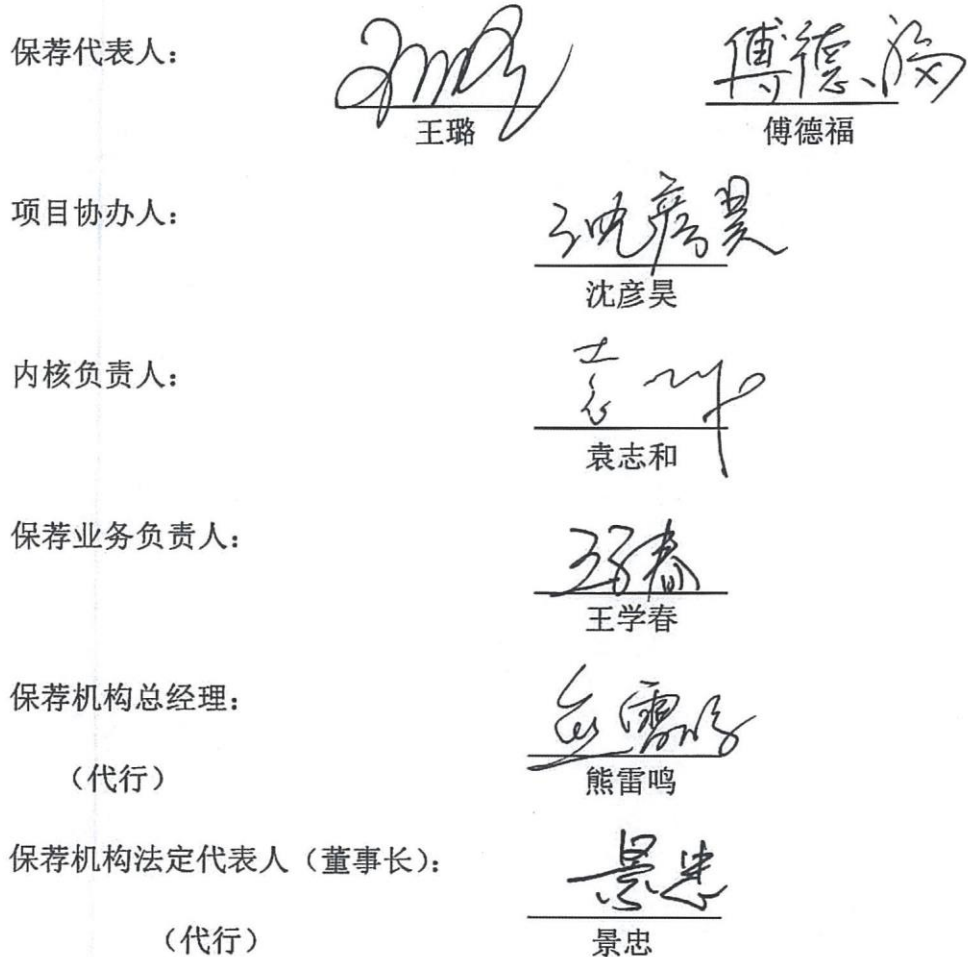 保荐代表人：
王璐 傅德福
项目协办人：
沈彦昊
内核负责人：
袁志和
保荐业务负责人：
王学春
保荐机构总经理：
（代行）
熊雷鸣
保荐机构法定代表人（董事长）：
（代行）
景忠